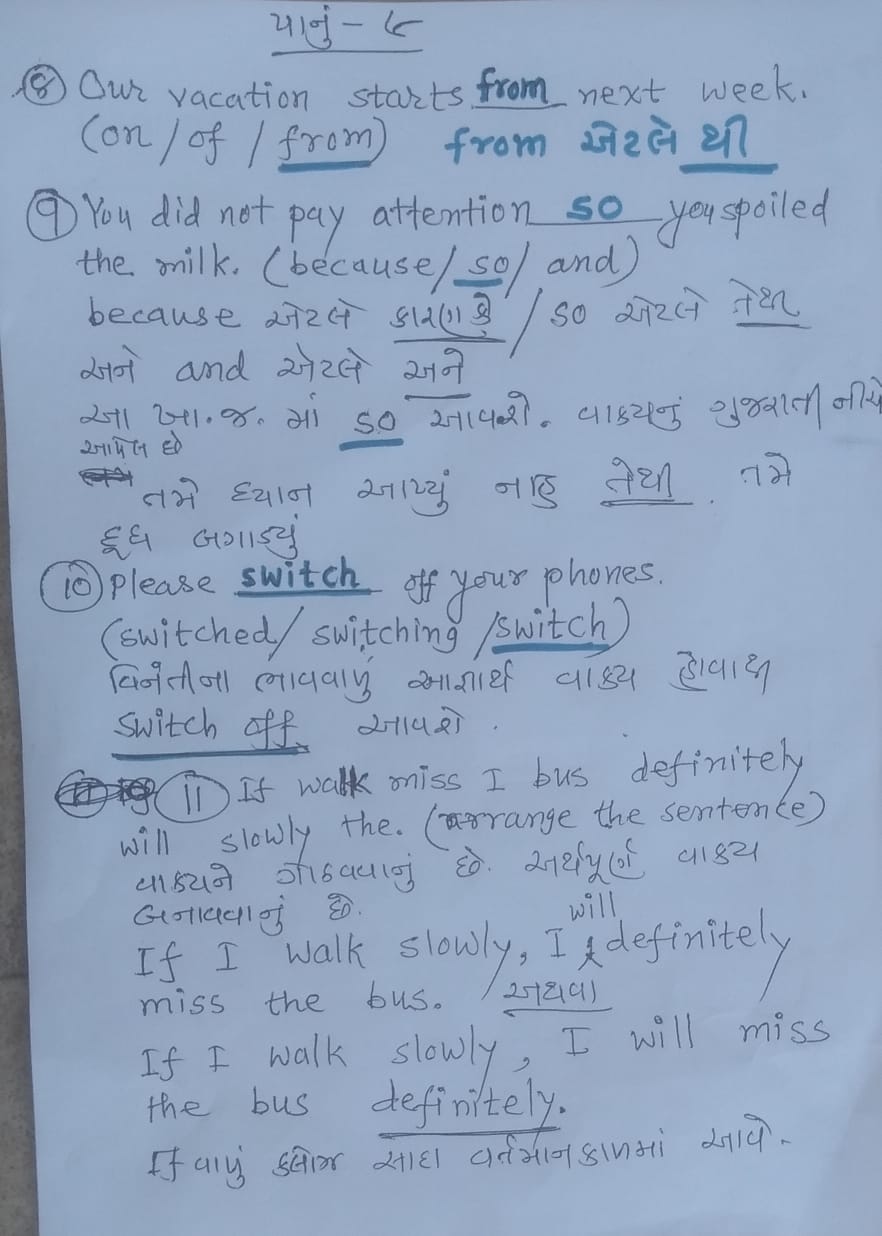 પાનું - ૯
⑧ Our vacation starts from next week.
(on / of / from) from એટલે થી
⑨ You did not pay attention so you spoiled
the milk. (because / so / and)
because એટલે કારણ કે / so એટલે તેથી
અને and એટલે અને
આ ખા. જ. માં so આવશે. વાક્યનું ગુજરાતી નીચે
આપેલ છે
તમે ધ્યાન આપ્યું નહિ તેથી તમે
દૂધ બગાડ્યું
⑩ Please switch off your phones.
(switched / switching / switch)
વિનંતીના ભાવવાળું આજ્ઞાર્થ વાક્ય હોવાથી
switch off આવશે.
⑪ If walk miss I bus definitely
will slowly the. (arrange the sentence)
વાક્યને ગોઠવવાનું છે. અર્થપૂર્ણ વાક્ય
બનાવવાનું છે.
If I walk slowly, I will definitely
miss the bus. / અથવા
If I walk slowly, I will miss
the bus definitely.
If વાળું ક્લોઝ સાદા વર્તમાનકાળમાં આવે.